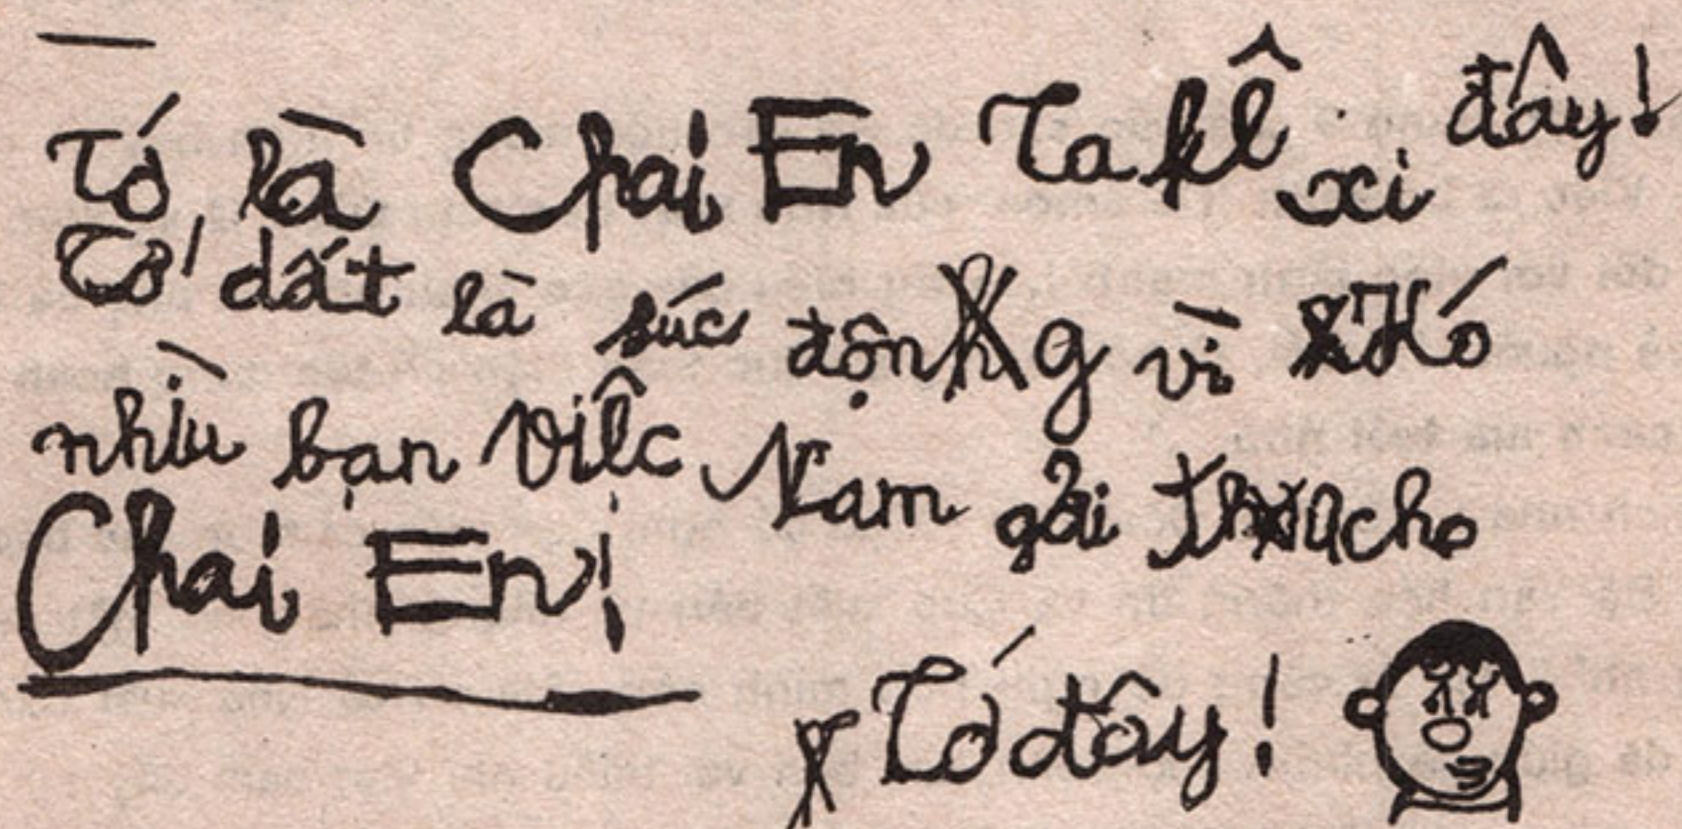 Tớ là Chai En Takê xi đây!
Tớ dất là súc động vì Kó
nhìu bạn Việc Nam gởi thư cho
Chai En!
Tớ đây!